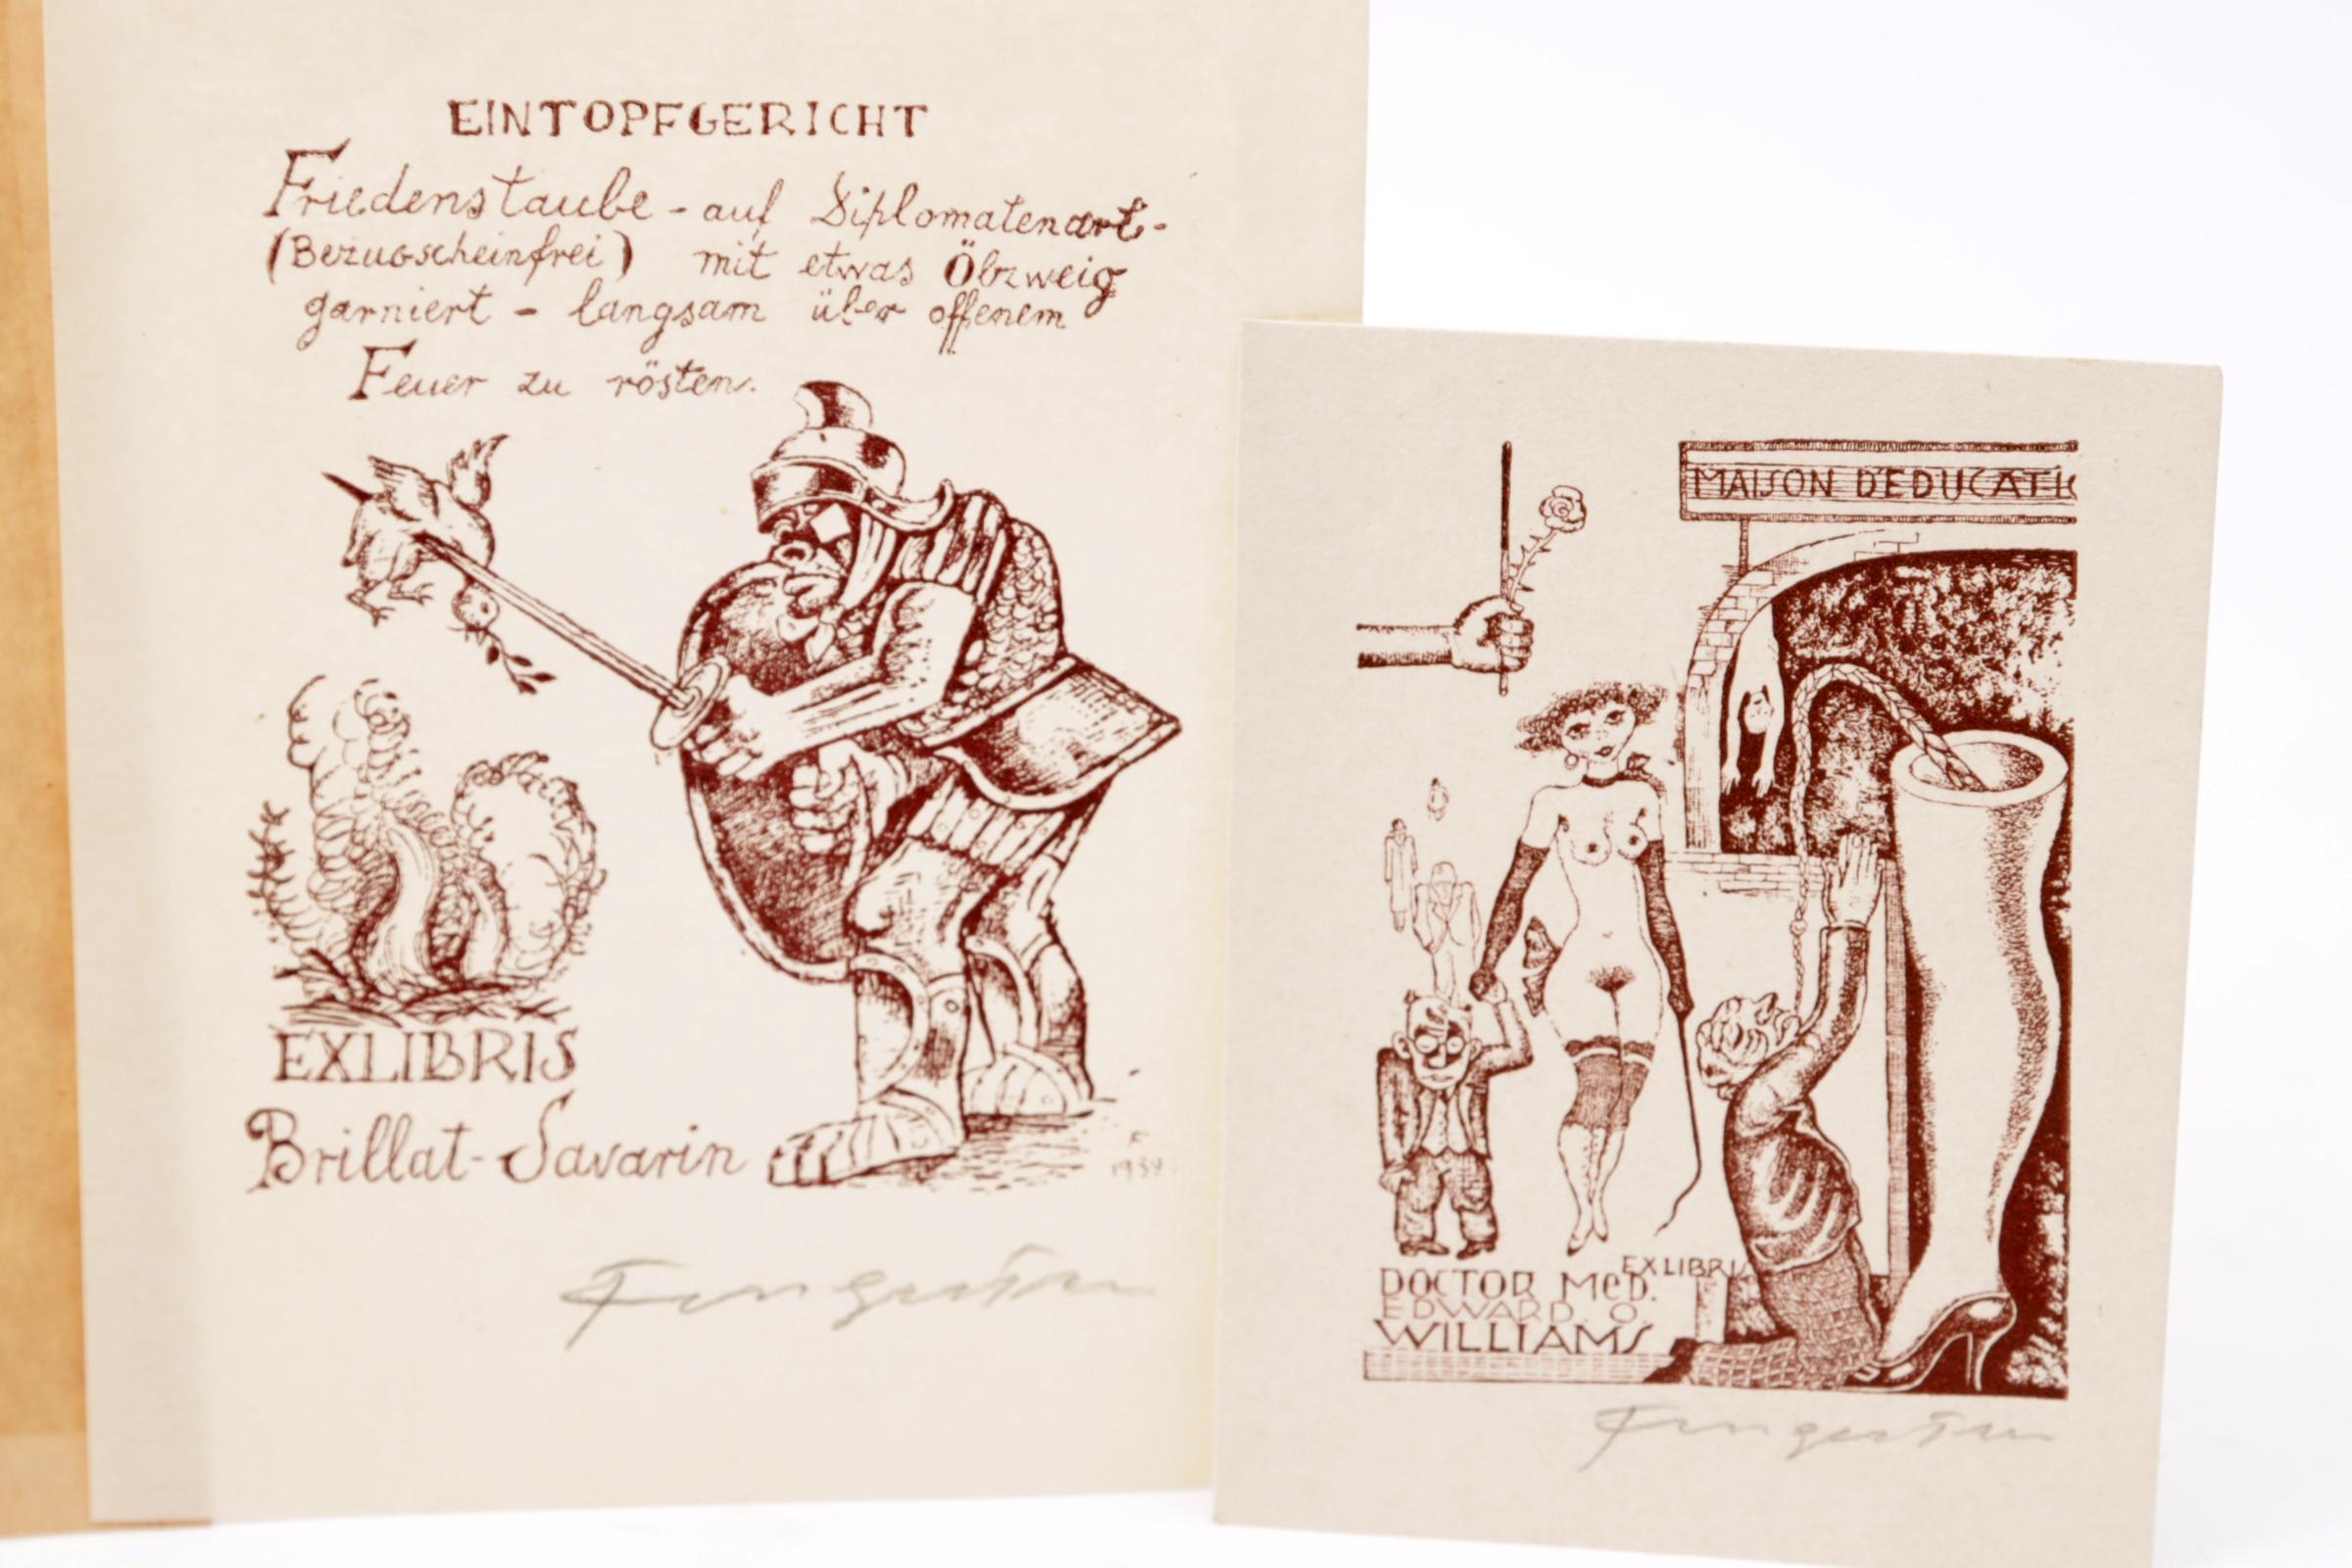 EINTOPFGERICHT
Friedenstaube - auf Diplomatenart -
(Bezugscheinfrei) mit etwas Ölzweig
garniert - langsam über offenem
Feuer zu rösten.
EXLIBRIS
Brillat-Savarin
F
1939
Fingesten
MAISON D'EDUCATI
EXLIBRIS
DOCTOR MED.
EDWARD. O.
WILLIAMS
Fingesten